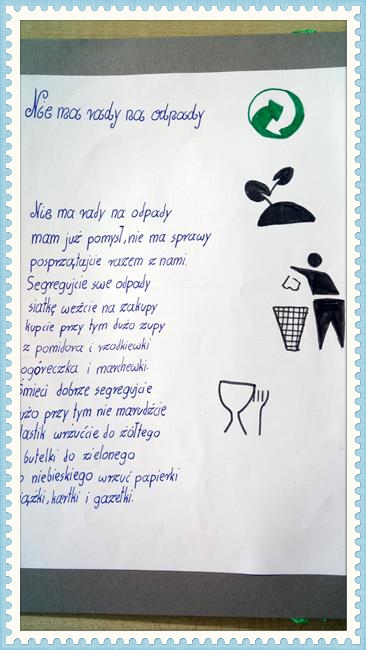 Nie ma rady na odpady
Nie ma rady na odpady
mam już pomysł, nie ma sprawy
posprzątajcie razem z nami.
Segregujcie swe odpady
siatkę weźcie na zakupy
kupcie przy tym dużo zupy
z pomidora i rzodkiewki
ogóreczka i marchewki.
śmieci dobrze segregujcie
użo przy tym nie marudźcie
lastik wrzućcie do żółtego
butelki do zielonego
o niebieskiego wrzuć papierki
iążki, kartki i gazetki.